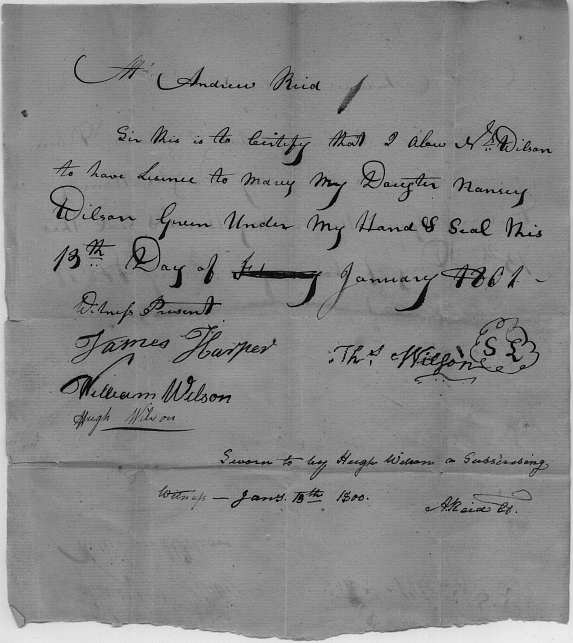 Mr Andrew Reid
Sir this is to Certify that I alow Js. Wilson
to have Lisence to marey My Daugter Nansey
Wilson Given Under My Hand & Seal this
13th Day of January 1801 -
Witness Present
James Harper
Thos Wilson S L
William Wilson
Hugh Wilson
Sworn to by Hugh Wilson a Subscribing
Witness - Jany. 13th 1800.
AReid Ct.